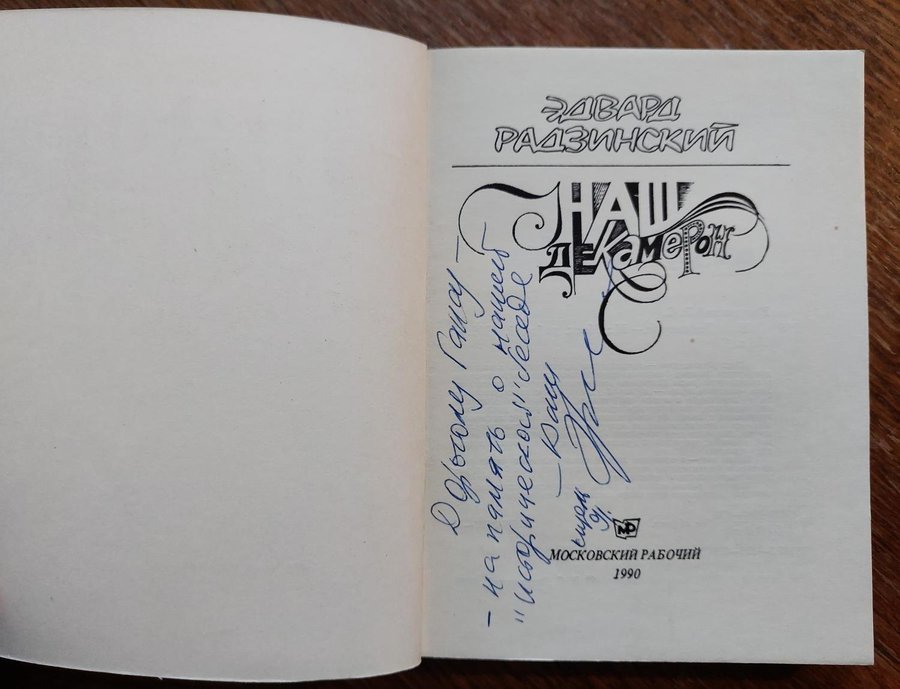 ЭДВАРД
РАДЗИНСКИЙ
НАШ
ДЕКАМЕРОН
Дорогому
– на память о нашей
"исторической" беседе
– Ваш
МР
МОСКОВСКИЙ РАБОЧИЙ
1990